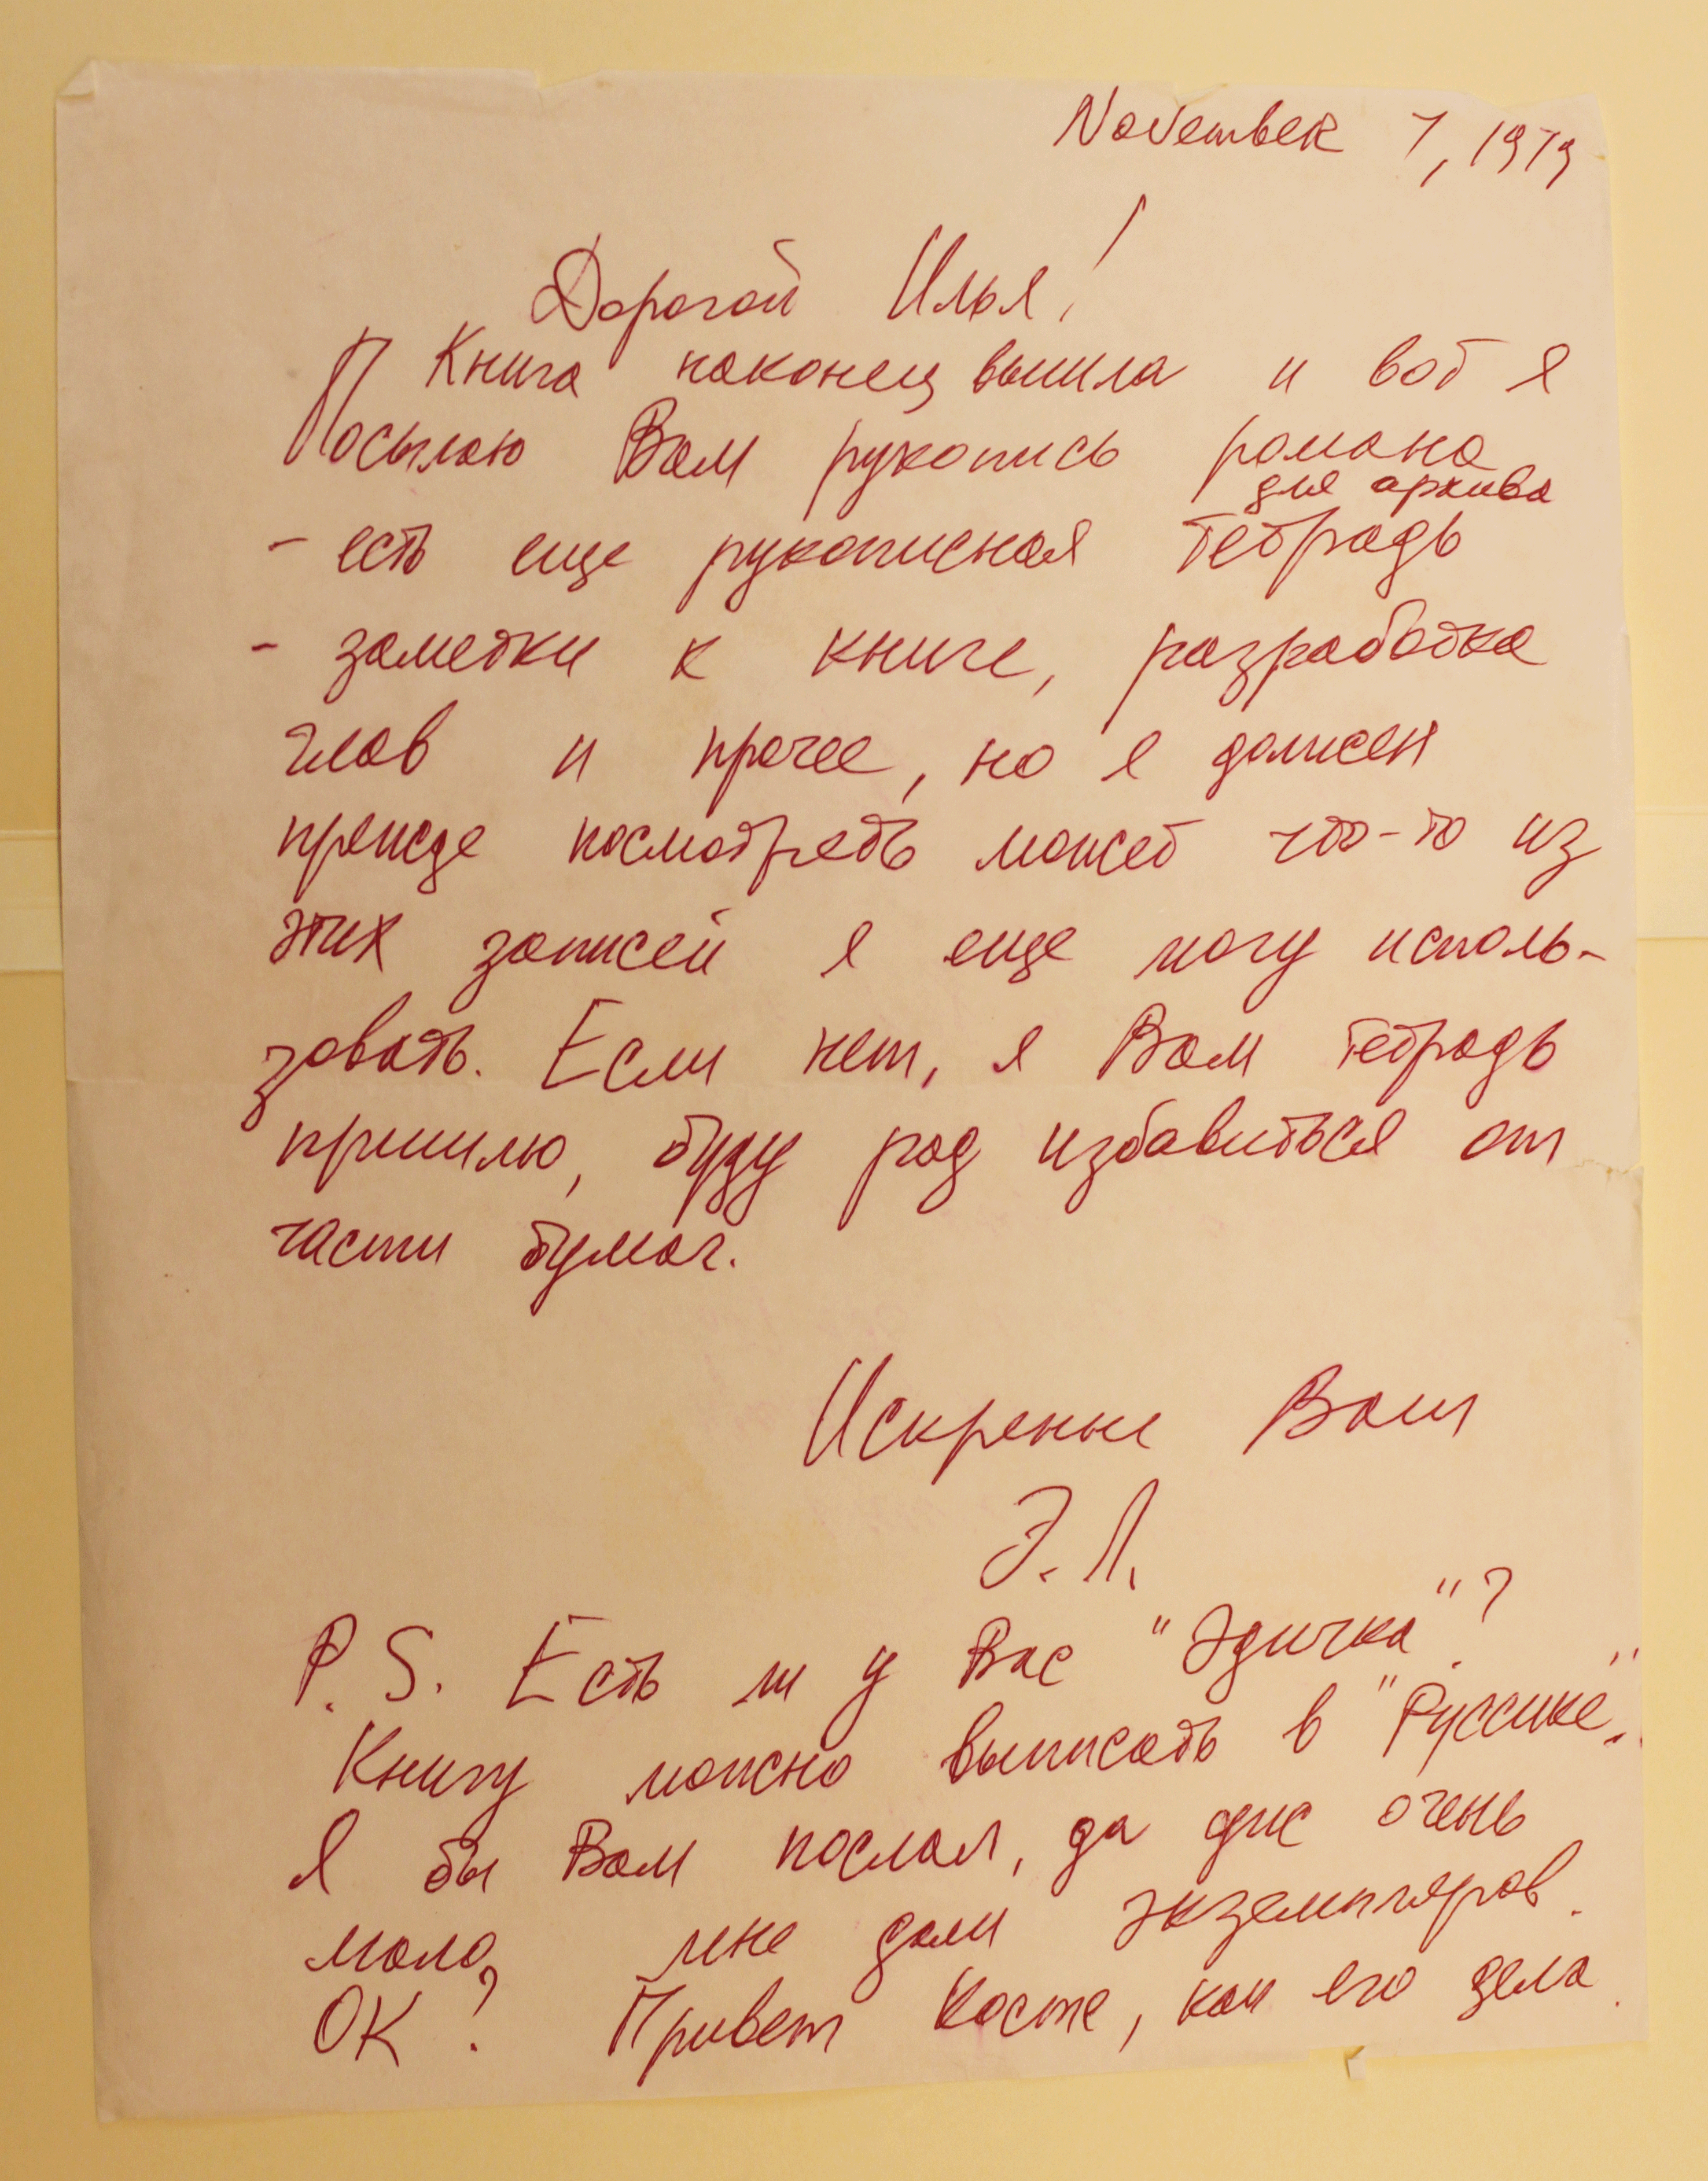 November 7, 1979
Дорогой Илья!
Книга наконец вышла и вот я
Посылаю Вам рукопись романа
для архива
- есть еще рукописная тетрадь
- заметки к книге, разработка
глав и прочее, но я должен
прежде посмотреть может что-то из
этих записей я еще могу исполь-
зовать. Если нет, я Вам тетрадь
пришлю, буду рад избавиться от
части бумаг.
Искренне Ваш
Э. Л.
P.S. Есть ли у Вас "Эдичка"?
Книгу можно выписать в "Руссике".
Я бы Вам послал, да очень
мало, мне дали экземпляров.
ОК? Привет Косте, как его дела.